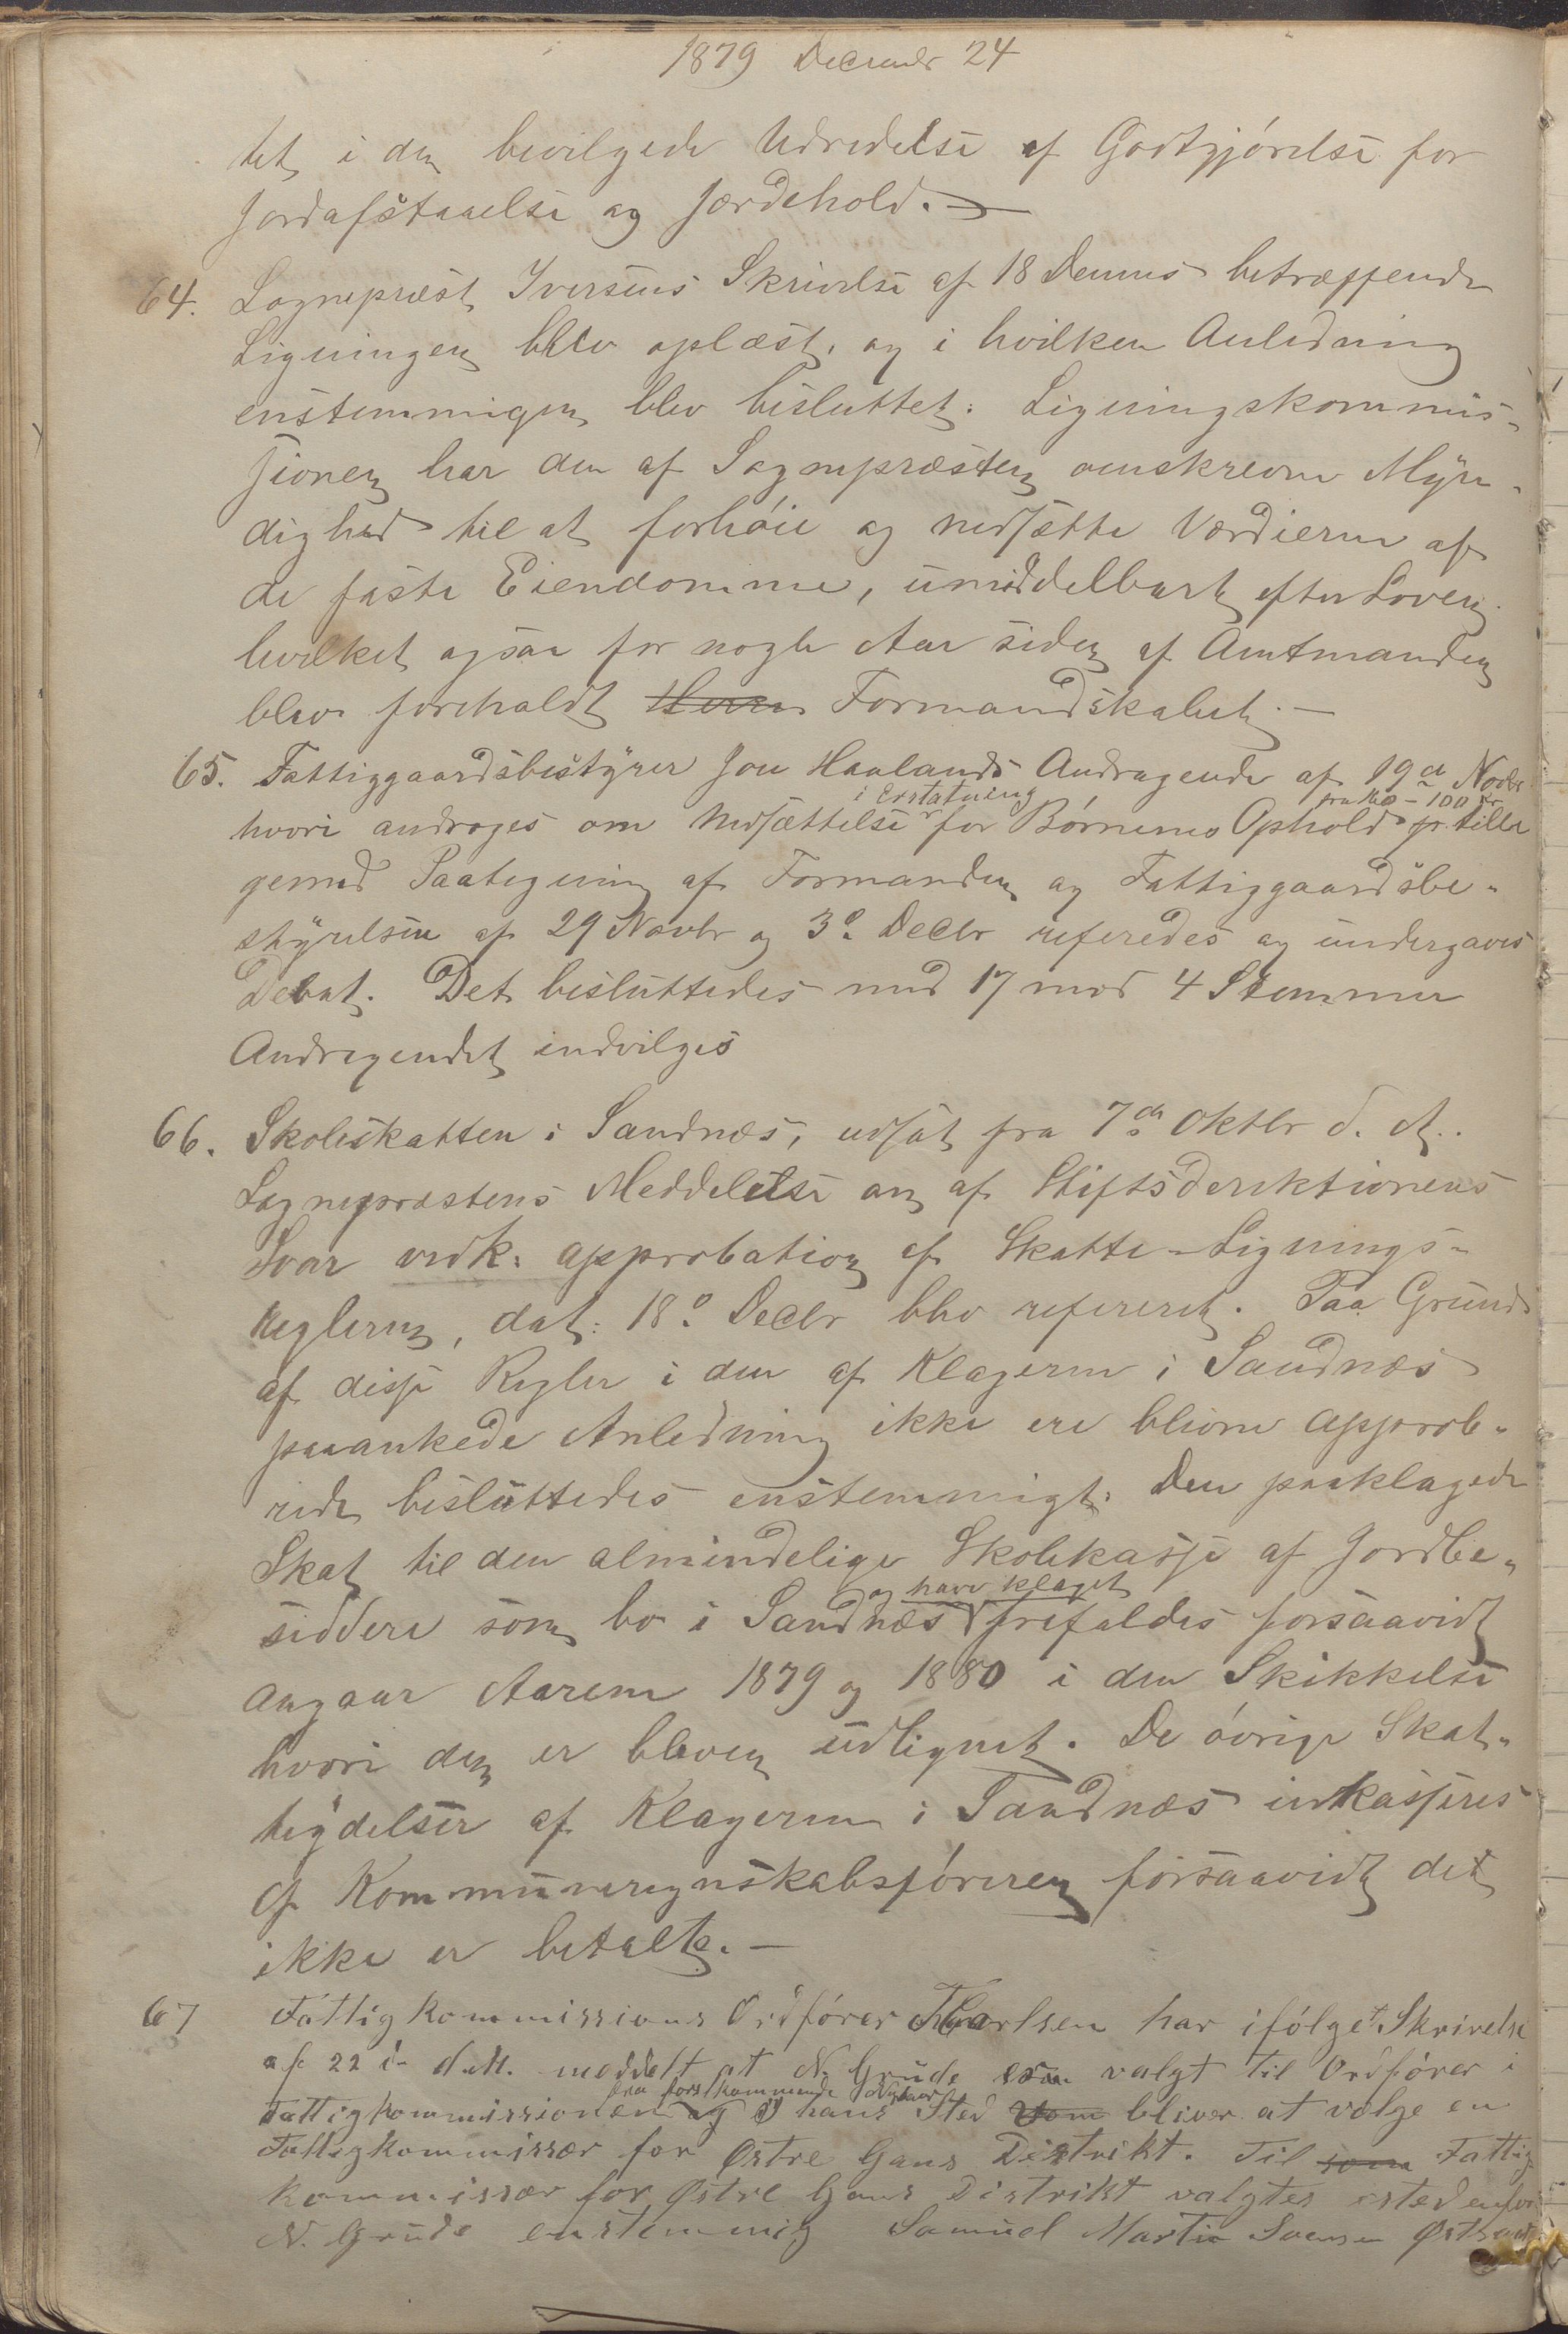 1879 Decembr 24
tet i den bevilgede Udredelse af Godtgjórelse for
Jordafstaaelse og Jærdehold. —
64. Sognepræst Iversens Skrivelse af 18 Dennes betræffende
Ligningen blev oplæst, og i hvilken Anledning
enstemmigen blev besluttet: Ligningskommis-
sionen har den af Sognepræsten omskrevne Myn-
dighed til at forhóie og nedsætte Værdierne af
de faste Eiendomme, umiddelbart efter Loven
hvilket ogsaa for nogle Aar siden af Amtmanden
blev foreholdt Formandskabet. —
65. Fattiggaardsbestyrer Jon Haalands Andragende af 19de Novbr
i Erstatning fra 80 - 100 Kr
hvori androges om Nedsættelse for Bórnenes Ophold pr. tille
gemed Paategning af Formanden og Fattiggaardsbe-
styrelsen af 29 Novbr og 3o Decbr referedes og undergaves
Debat. Det besluttedes med 17 mod 4 Stemmer
Andragendet indvilges
66. Skoleskatten i Sandnæs, udsat fra 7de Oktbr d. A.
Sognepræstens Meddelelse om af Stiftsderektionens
Svar vedk: approbation af Skatte-Lignings-
reglerne, dat: 18o Decbr blev refereret. Paa Grund
af disse Regler i den af Klagerne i Sandnæs
paaankede Anledning ikke ere blevne approbe-
rede besluttedes enstemmigt: Den paaklagede
Skat til den almindelige Skolekasse af Jordbe-
og have klaget
siddere som bo i Sandnæs frafaldes forsaavidt
angaar Aarene 1879 og 1880 i den Skikkelse
hvori den er bleven udlignet. De óvrige Skat-
teydelser af Klagerne i Sandnæs inkasseres
af Kommuneregnskabsfóreren forsaavidt det
ikke er betalte. —
67 Fattigkommissions Ordfórer Th Carlsen har ifólge Skrivelse
af 22 i d. M. meddelt at N. Grude er valgt til Ordfórer i
fra forstkommende Nytaar
Fattigkommissionen og i hans Sted bliver at vælge en
Fattigkommissær for Østre Gans Distrikt. Til som Fattig
kommissær for Østre Gans Distrikt valgtes istedenfor
N. Grude enstemmig Samuel Martin Svensen